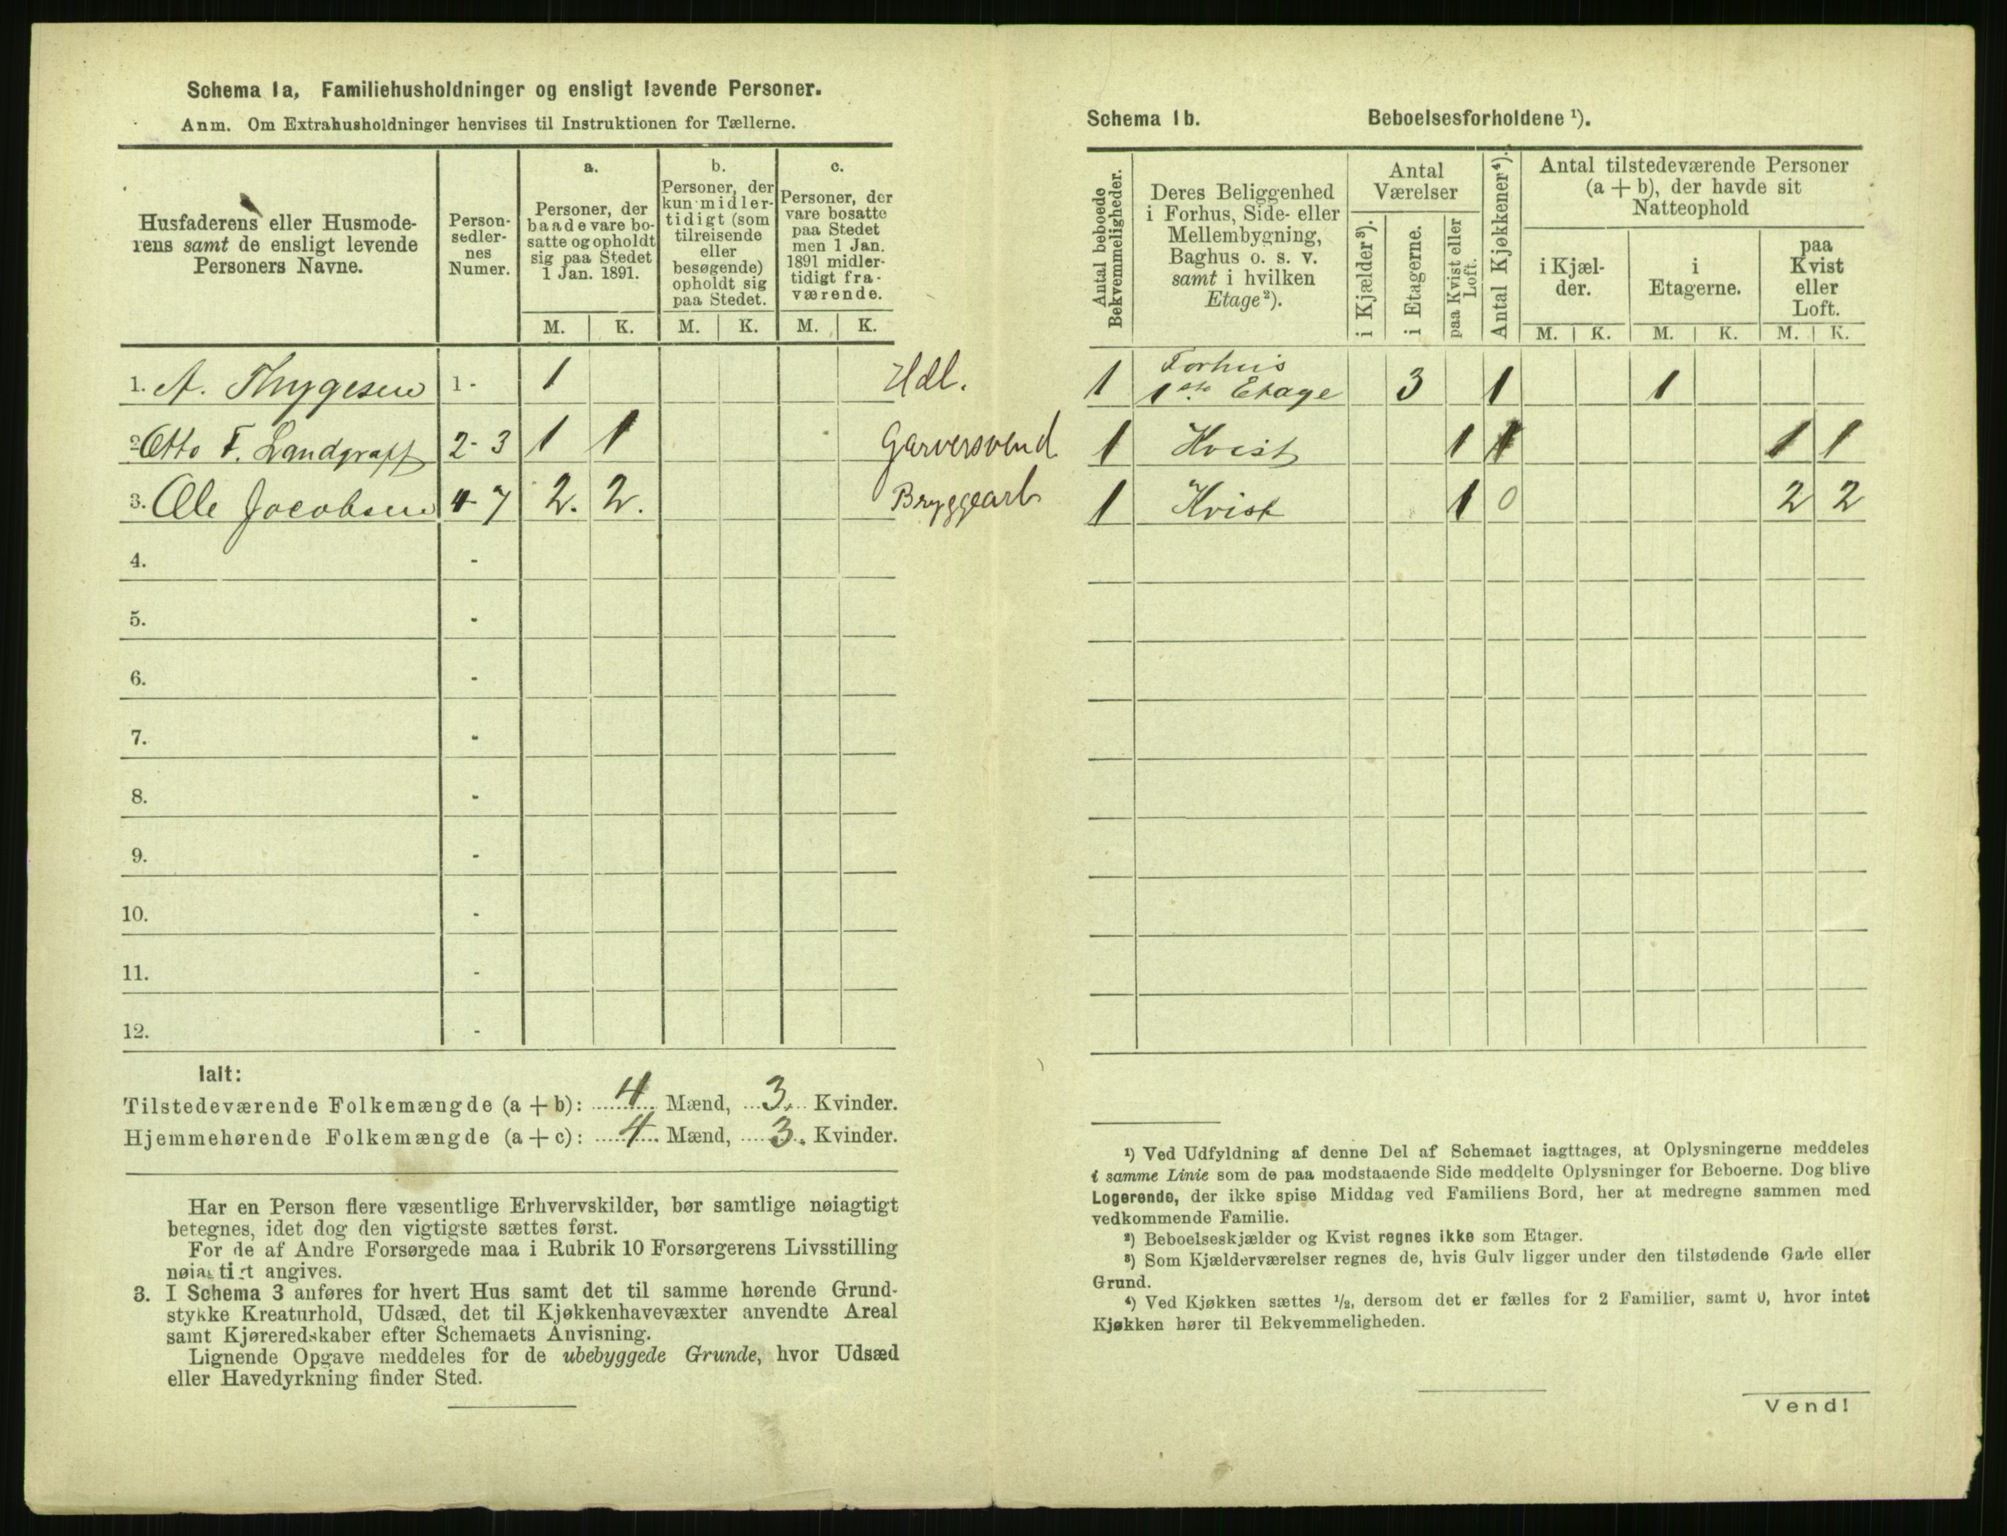 Schema 1a, Familiehusholdninger og ensligt levende Personer.
Anm. Om Extrahusholdninger henvises til Instruktionen for Tællerne.
Husfaderens eller Husmoderens samt de ensligt levende Personers Navne.
Personsedlernes Numer.
a. Personer, der baade vare bosatte og opholdt sig paa Stedet 1 Jan. 1891.
b. Personer, der kun midlertidigt (som tilreisende eller besøgende) opholdt sig paa Stedet.
c. Personer, der vare bosatte paa Stedet men 1 Jan. 1891 midlertidigt fraværende.
M. K. M. K. M. K.
1. A. Thygesen 1- 1 Hdl.
2. Otto F. Landgraff 2-3 1 1 Garversvend
3. Ole Jacobsen 4-7 2. 2. Bryggearb
4. -
5. -
6. -
7. -
8. -
9. -
10. -
11. -
12. -
Ialt:
Tilstedeværende Folkemængde (a+b): 4 Mænd, 3. Kvinder.
Hjemmehørende Folkemængde (a+c): 4 Mænd, 3. Kvinder.
Har en Person flere væsentlige Erhvervskilder, bør samtlige nøiagtigt
betegnes, idet dog den vigtigste sættes først.
For de af Andre Forsørgede maa i Rubrik 10 Forsørgerens Livsstilling
nøiagtigt angives.
3. I Schema 3 anføres for hvert Hus samt det til samme hørende Grund-
stykke Kreaturhold, Udsæd, det til Kjøkkenhavevæxter anvendte Areal
samt Kjøreredskaber efter Schemaets Anvisning.
Lignende Opgave meddeles for de ubebyggede Grunde, hvor Udsæd
eller Havedyrkning finder Sted.
Schema 1b. Beboelsesforholdene ¹).
Antal beboede Bekvemmeligheder.
Deres Beliggenhed i Forhus, Side- eller Mellembygning, Baghus o. s. v. samt i hvilken Etage²).
Antal Værelser
i Kjælder³).
i Etagerne.
paa Kvist eller Loft.
Antal Kjøkkener⁴).
Antal tilstedeværende Personer (a+b), der havde sit Natteophold
i Kjælder.
i Etagerne.
paa Kvist eller Loft.
M. K. M. K. M. K.
1 Forhus 1ste Etage 3 1 1
1 Kvist 1 1 1 1
1 Kvist 1 0 2 2
¹) Ved Udfyldning af denne Del af Schemaet iagttages, at Oplysningerne meddeles
i samme Linie som de paa modstaaende Side meddelte Oplysninger for Beboerne. Dog blive
Logerende, der ikke spise Middag ved Familiens Bord, her at medregne sammen med
vedkommende Familie.
²) Beboelseskjælder og Kvist regnes ikke som Etager.
³) Som Kjælderværelser regnes de, hvis Gulv ligger under den tilstødende Gade eller
Grund.
⁴) Ved Kjøkken sættes ½, dersom det er fælles for 2 Familier, samt 0, hvor intet
Kjøkken hører til Bekvemmeligheden.
Vend!